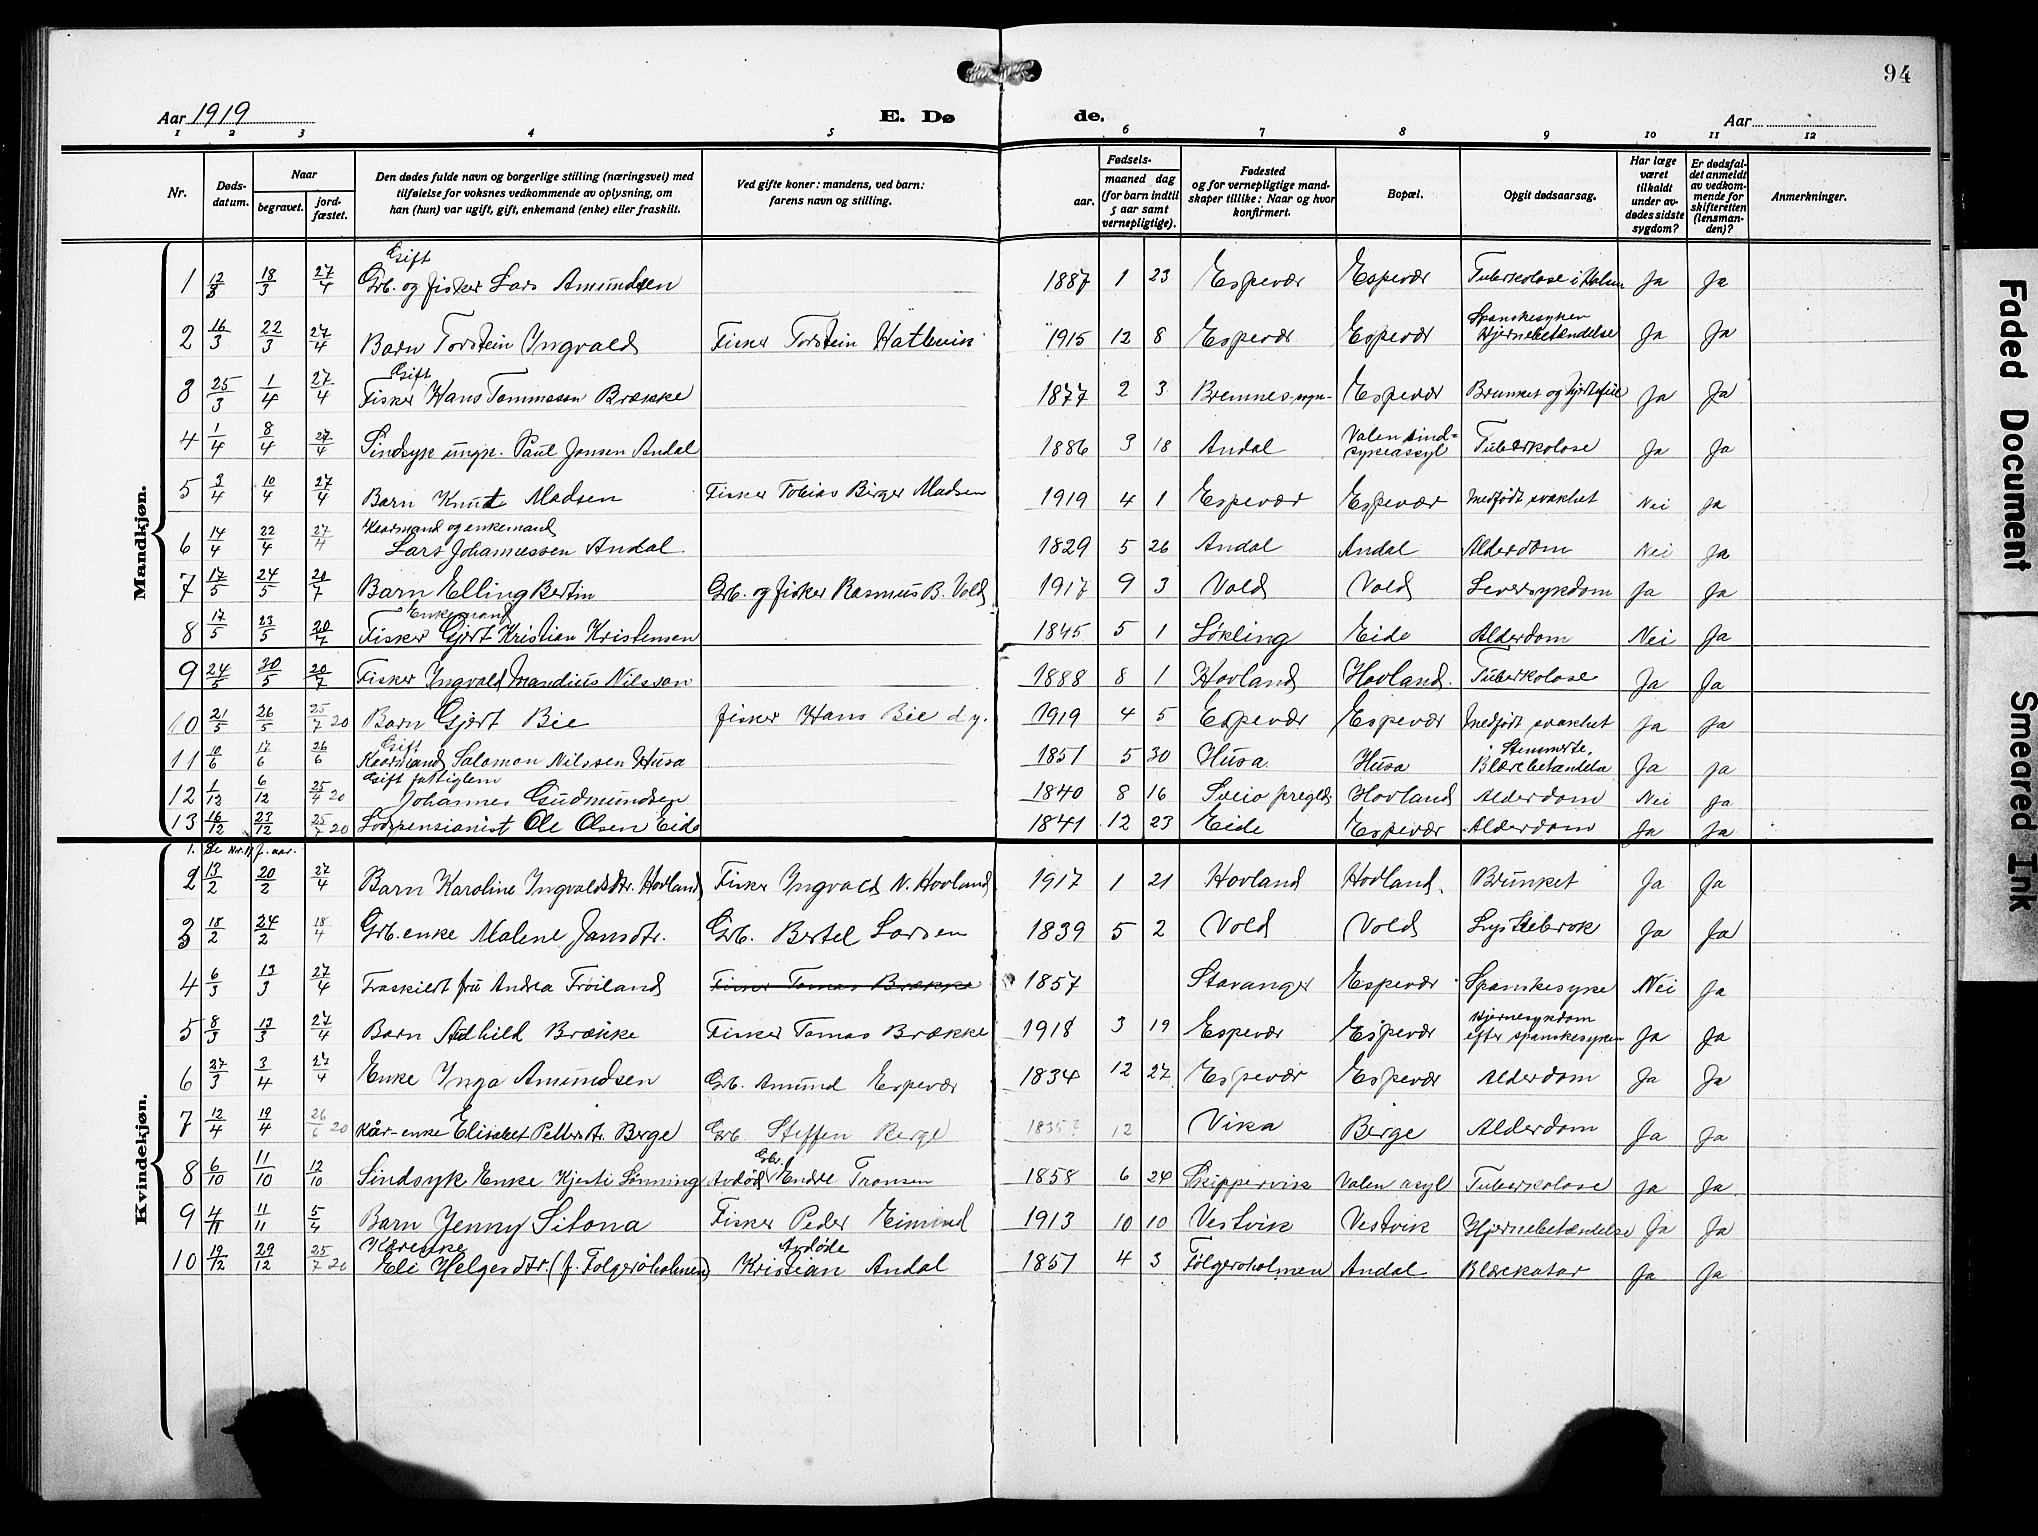 94
Aar 1919
E. Dø
de.
Aar
1 2 3 4 5 6 7 8 9 10 11 12
Nr.
Døds-
datum.
Naar
begravet.
jord-
fæstet.
Den dødes fulde navn og borgerlige stilling (næringsvei) med
tilføielse for voksnes vedkommende av oplysning, om
han (hun) var ugift, gift, enkemand (enke) eller fraskilt.
Ved gifte koner: mandens, ved barn:
farens navn og stilling.
Fødsels-
aar.
maaned dag
(for barn indtil
5 aar samt
vernepligtige).
Fødested
og for vernepligtige mand-
skaper tillike: Naar og hvor
konfirmert.
Bopæl.
Opgit dødsaarsag.
Har læge
været
tilkaldt
under av-
dødes sidste
sygdom?
Er dødsfal-
det anmeldt
av vedkom-
mende for
skifteretten
(lensman-
den)?
Anmerkninger.
Mandkjøn.
Gift
1 12/3 18/3 27/4 Grb. og fisker Lars Amundsen 1887 1 23 Espevær Espevær Tuberkolose i Ja Ja
Spanskesyken
2 16/3 22/3 27/4 Barn Torstein Ingvald Fisker Torstein 1915 12 8 Espevær Espevær Hjernebetændelse Ja Ja
Gift
3 25/3 1/4 27/4 Fisker Hans Tommesen Brække 1877 2 3 Bremnes sogn Espevær Brunket og hjertefeil Ja Ja
4 1/4 8/4 27/4 Sindsyk ungk. Paul Jansen Andal 1886 3 18 Andal Valen sind-
sykeassyl Tuberkolose Ja Ja
5 3/4 10/4 27/4 Barn Knut Madsen Fisker Tobias Birger Madsen 1919 4 1 Espevær Espevær Medfødt svakhet Nei Ja
Kaarmand og enkemand
6 14/4 22/4 27/4 Lars Johannessen Andal 1829 5 26 Andal Andal Alderdom Nei Ja
7 17/5 24/5 20/7 Barn Elling Bertin Grb. og fisker Rasmus B. Vold 1917 9 3 Vold Vold Leversykdom Ja Ja
Enkemand
8 17/5 23/5 20/7 Fisker Gjert Kristian Kristensen 1845 5 1 Løkling Eide Alderdom Nei Ja
9 24/5 30/5 20/7 Fisker Ingvald Mandius Nilsson 1888 8 1 Hovland Hovland. Tuberkolose Ja Ja
10 21/5 26/5 25/7 20 Barn Gjert Bie fisker Hans Bie d.y. 1919 4 5 Espevær Espevær Medfødt svakhet Ja Ja
Gift
11 10/6 17/6 26/6 Kaarmand Salomon Nilssen Husa 1851 5 30 Husa Husa Blærebetændelse Ja Ja
Gift fattiglem
12 1/12 6/12 25/4 20 Johannes Gudmundsen 1840 8 16 Sveio pregld Hovland Alderdom Nei Ja
13 16/12 23/12 25/7 20 Lodspensionist Ole Olsen Eide 1841 12 23 Eide Espevær Alderdom Ja Ja
Kvindekjøn.
1. Se Nr. 17 f. aar.
2 13/2 20/2 27/4 Barn Karoline Ingvaldsdtr. Hovland Fisker Ingvald N. Hovland 1917 1 21 Hovland Hovland. Brunket Ja Ja
3 18/2 24/2 18/4 Grb.enke Malene Jansdtr. Grb. Bertel Larsen 1839 5 2 Vold Vold Lyskebrok Ja Ja
4 6/3 13/3 27/4 Fraskildt fru Andrea Frøiland Fisker Tomas Brække 1857 Stavanger Espevær Spanskesyke Nei Ja
5 8/3 13/3 27/4 Barn Brække Fisker Tomas Brække 1918 3 19 Espevær Espevær Hjernesykdom
efter spanskesyken Ja Ja
6 27/3 3/4 27/4 Enke Inga Amundsen Grb. Amund Espevær 1834 12 27 Espevær Espevær Alderdom Ja Ja
7 12/4 19/4 26/6 20 Kår-enke Elisabet Pettersdtr. Berge Grb. Steffen Berge 1835? 12 Vika Berge Alderdom Ja Ja
8 6/10 11/10 12/10 Sindsyk Enke Kjersti Lønning Avdød Grb. Endre Tronsen 1858 6 24 Skippervik Valen asyl Tuberkolose Ja Ja
9 4/11 11/11 5/4 Barn Jenny Silona Fisker Peder 1913 10 10 Vestvik Vestvik Hjernebetændelse Ja Ja
Kårenke Avdøde
10 19/12 29/12 25/7 20 Eli Helgesdtr. (f. Folgerøholmen) Kristian Andal 1851 4 3 Følgerøholmen Andal Blærekatar Ja Ja
Faded Document
Smeared Ink